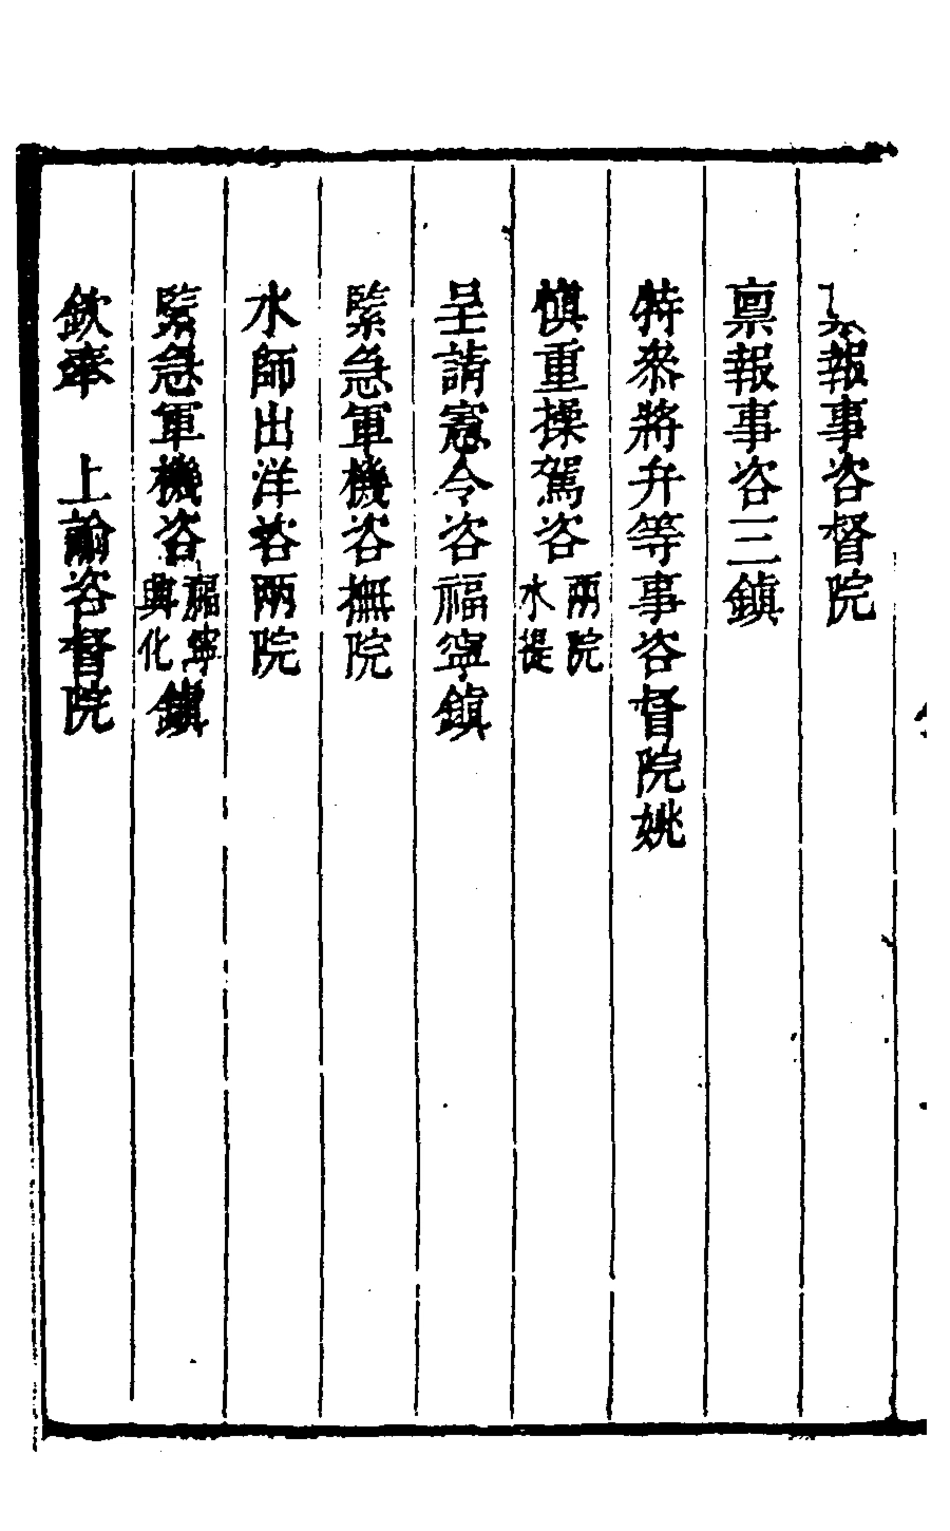 稟報事咨督院
稟報事咨三鎮
特叅將弁等事咨督院姚
慎重操駕咨兩院水提
呈請憲令咨福寧鎮
緊急軍機咨撫院
水師出洋咨兩院
緊急軍機咨福寧興化鎮
欽奉　上諭咨督院